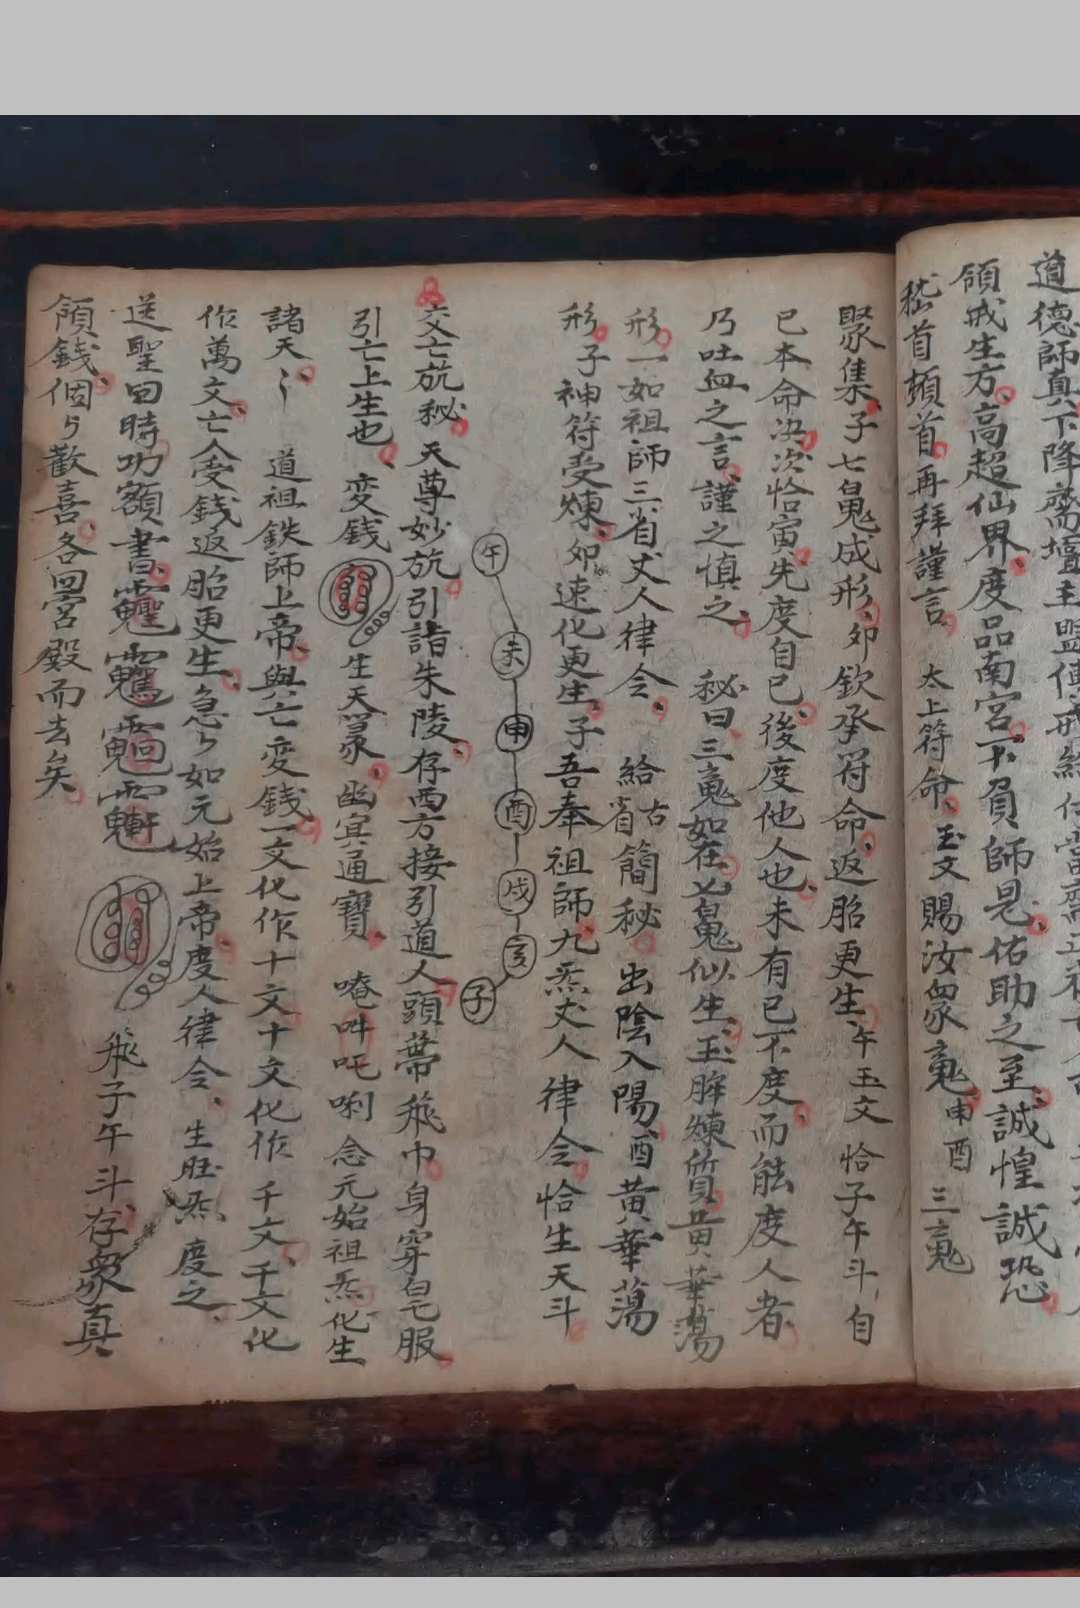 道德師真下降齋壇主盟傳戒給付當齋正
領戒生方高超仙界度品南宮不負師恩佑助之至誠惶誠恐
嵇首頓首再拜謹言 太上符命玉文賜汝眾䰟申酉 三䰟
聚集子七䰟成形卯欽承符命返胎更生午玉文恰子午斗自
已本命決次恰寅先度自已後度他人也未有已不度而能度人者
乃吐血之言謹之慎之 秘曰三䰟如在七䰟似生玉眸煉質黃華蕩
形一如祖師三省丈人律令 給古省簡秘出陰入陽酉黃華蕩
形子神符受煉卯速化更生子吾奉祖師九炁丈人律令恰生天斗
午 未 申 酉 戌 亥 子
交亡旂秘天尊妙旂引詣朱陵存西方接引道人頭帶飛巾身穿皂服
引亡上生也 変錢 生天篆 幽冥通寶 唵吽吒唎念元始祖炁化生
諸天〻 道祖鉄師上帝與亡変錢一文化作十文十文化作千文千文化
作萬文亡人受錢返胎更生急〻如元始上帝度人律令 生旺炁度之
送聖回時功額書 飛子午斗存眾真
領錢個〻歡喜各回宮殿而去矣